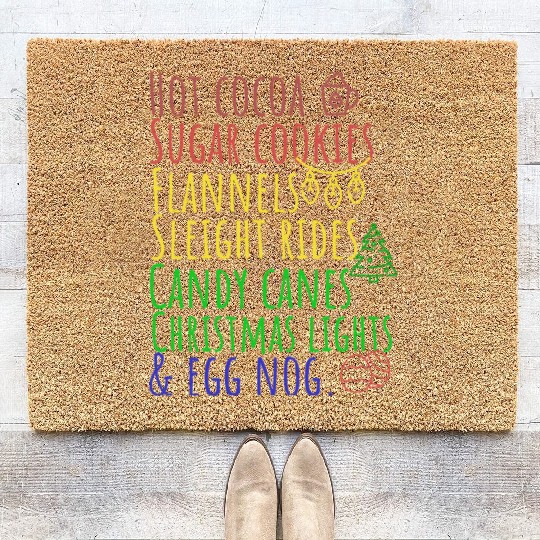 HOT COCOA
SUGAR COOKIES
FLANNELS
SLEIGHT RIDES
CANDY CANES
CHRISTMAS LIGHTS
& EGG NOG.